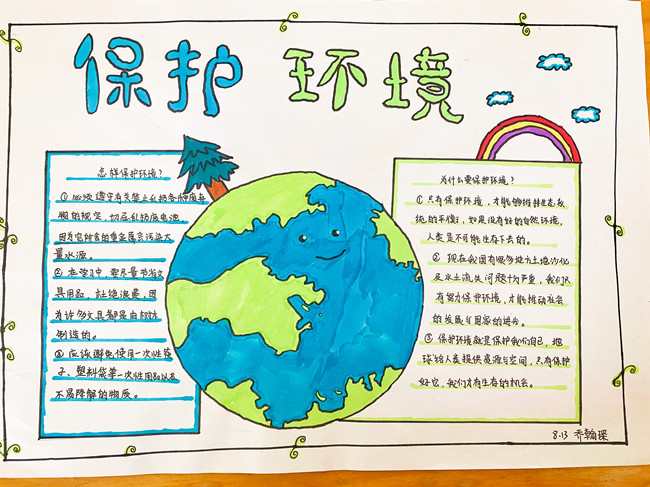 保护 环境
怎样保护环境?
① 必须遵守有关禁止乱扔各种废弃
物的规定,切忌乱扔废电池
因为它所含的重金属会污染大
量水源。
② 在学习中,要尽量节约文
具用品,杜绝浪费,因
为许多文具都是由树木
制造的。
③ 应该避免使用一次性筷
子、塑料袋等一次性用品以及
不易降解的物质。
为什么要保护环境?
① 只有保护环境,才能够维持生态系
统的平衡,如果没有好的自然环境,
人类是不可能生存下去的。
② 现在我国有很多地方土壤沙化
及水土流失问题十分严重,我们只
有努力保护环境,才能推动社会
的发展与国家的进步。
③ 保护环境就是保护我们自己,地
球给人类提供资源与空间,只有保护
好它,我们才有生存的机会。
8.13 乔翰琛